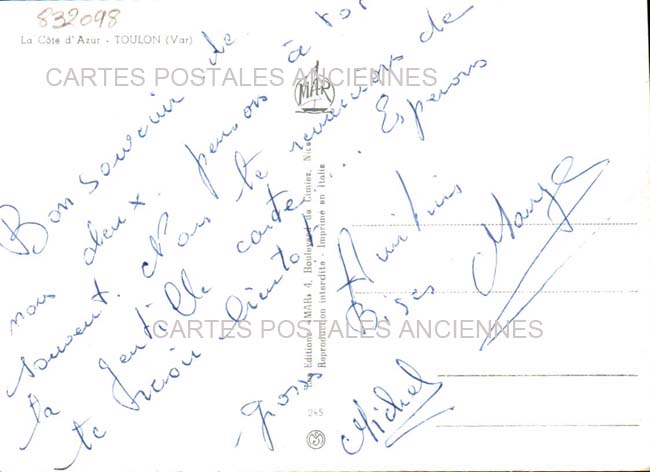 832098
La Côte d'Azur - TOULON (Var)
CARTES POSTALES ANCIENNES
MAR
Bon souvenir de
nous deux. pensons à toi
souvent. Nous te remercions de
ta gentille carte... Espérons
te revoir bientôt
Amitiés
grosses Bises
Michel
CARTES POSTALES ANCIENNES
Les Editions «MAR» 4, Boulevard de Cimiez, Nice
Reproduction interdite - Imprimé en Italie
245